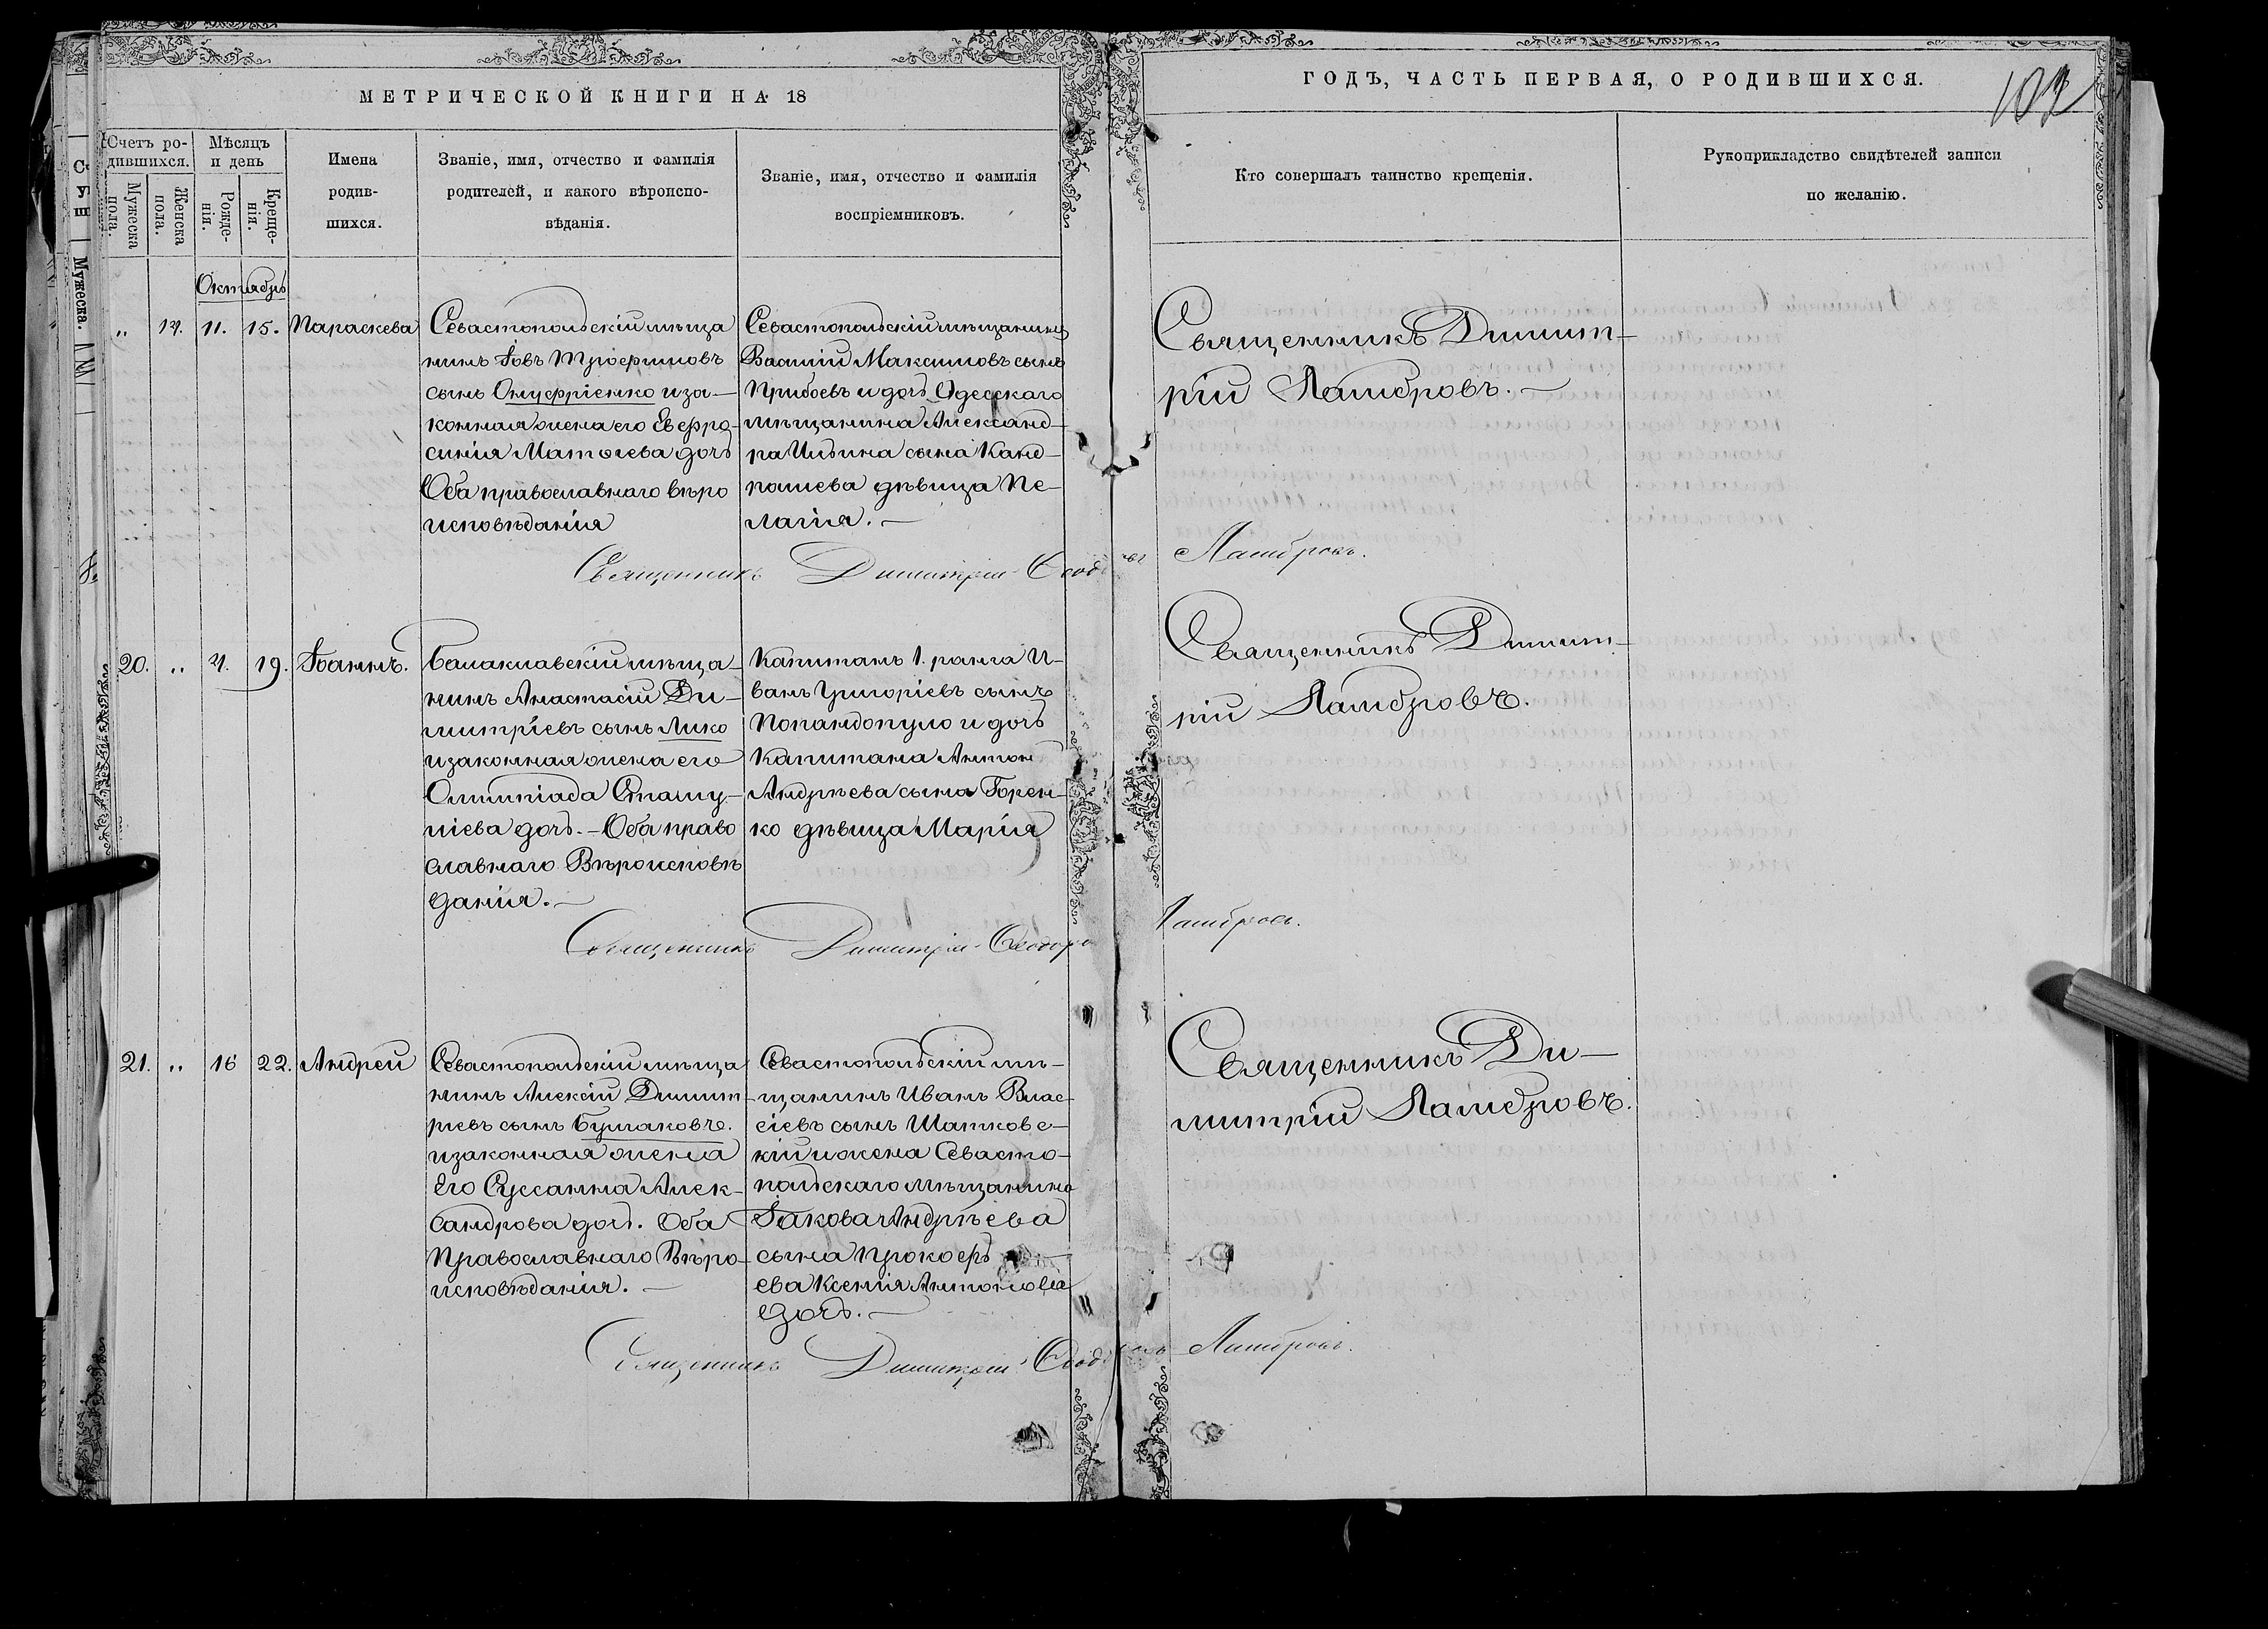 МЕТРИЧЕСКОЙ КНИГИ НА 18
ГОДЪ, ЧАСТЬ ПЕРВАЯ, О РОДИВШИХСЯ.
Счетъ ро-
дившихся.
Мужеска пола.
Женска пола.
Мѣсяцъ
и день
Рожде-
нія.
Креще-
нія.
Имена
родив-
шихся.
Званіе, имя, отчество и фамилія
родителей, и какого вѣроиспо-
вѣданія.
Званіе, имя, отчество и фамилія
воспріемниковъ.
Кто совершалъ таинство крещенія.
Рукоприкладство свидѣтелей записи
по желанію.
Мужеска.
Октябрь
„ 11. 15. Параскева
Севастопольскій мѣща
нинъ Іовъ Трофимовъ
сынъ Онуфріенко и за-
конная жена его Евфро-
синія Матѳеева дочь
Оба православнаго вѣро
исповѣданія
Севастопольскій мѣщанинъ
Василій Максимовъ сынъ
Прибоевъ и дочь Одесскаго
мѣщанина Александ-
ра Ильина сына Канд-
рашева дѣвица Пе-
лагія.—
Священникъ Димит-
рій Ламбровъ.—
Священникъ Димитрій Ѳеодоровъ Ламбровъ.
20. „ 19. Іоаннъ.
Балаклавскій мѣща-
нинъ Анастасій Ди-
митріевъ сынъ Лико
и законная жена его
Олимпіада
дочь.—Оба право
славнаго Вѣроисповѣ
данія.—
Капитанъ 1. ранга И-
ванъ Григоріевъ сынъ
Попандопуло и дочь
Капитана Антон
Андрѣева сына Горен-
ко дѣвица Марія
Священникъ Димит-
рій Ламбровъ.
Священникъ Димитрій Ѳеодоро Ламбровъ.
21. „ 16 22. Андрей
Севастопольскій мѣща
нинъ Алексій Димит-
ріевъ сынъ Булаковъ.
и законная жена
Его Суссанна Алек-
сандрова дочь. Оба
Православнаго Вѣро-
исповѣданія.—
Севастопольскій мѣ-
щанинъ Иванъ Влас-
сіевъ сынъ Шатковс-
кій и жена Севасто-
польскаго мѣщанина
Іакова Андрѣева
сына Прокофь
ева Ксенія Антонова
дочь.—
Священникъ Ди-
митрій Ламбровъ.
Священникъ Димитрій Ѳеодоровъ Ламбровъ.